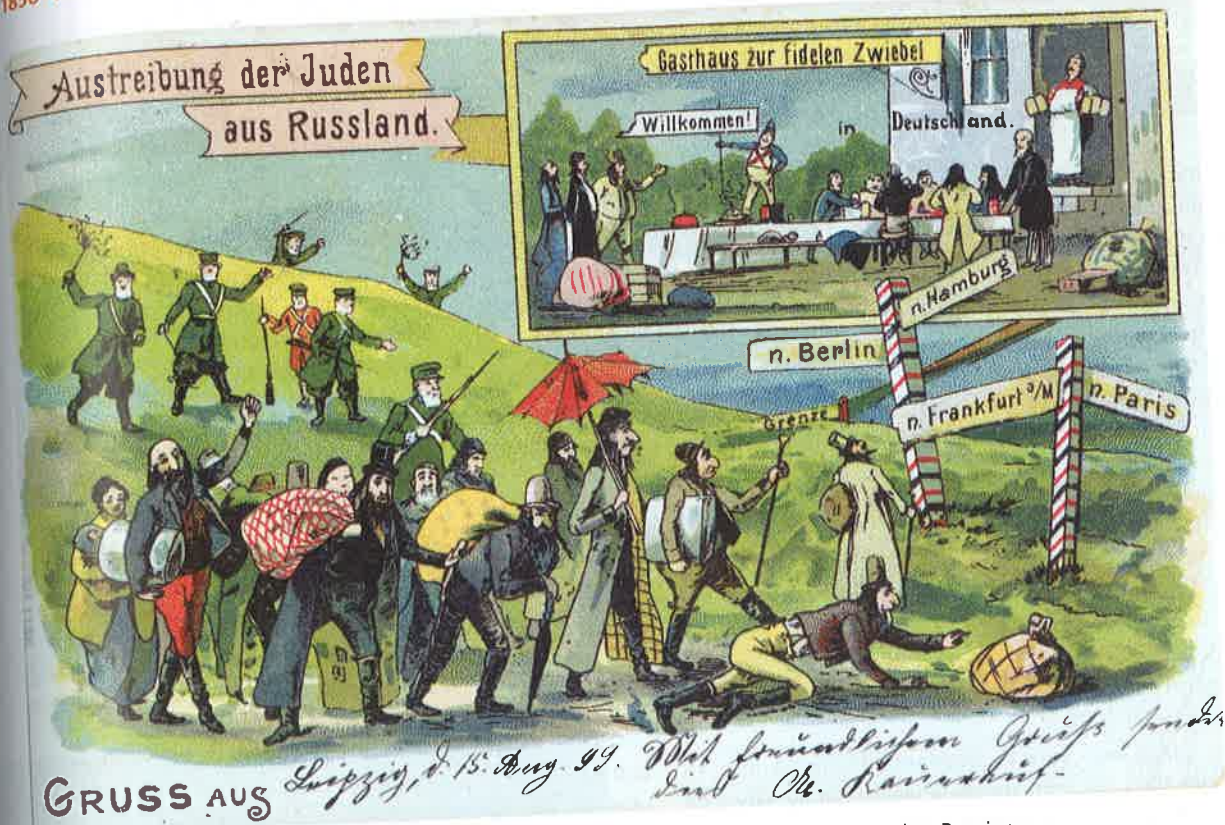 Austreibung der Juden
aus Russland.
Gasthaus zur fidelen Zwiebel
Willkommen!
in Deutschland.
n. Hamburg
n. Berlin
n. Frankfurt a/M
n. Paris
Grenze
Leipzig, d. 15. Aug. 99. Mit freundlichem Gruß sendet
dies
GRUSS AUS